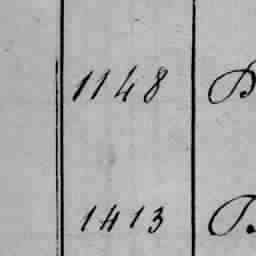 1148 В
1413 Т.